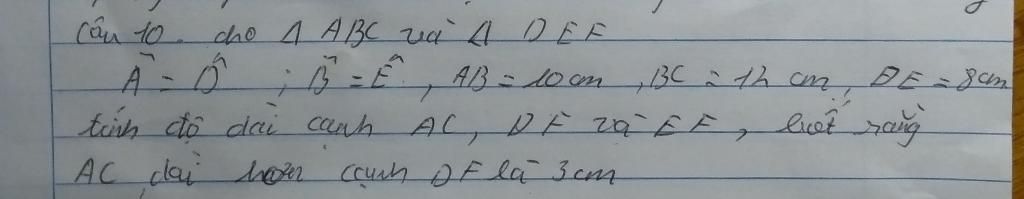 Câu 10. cho Δ ABC và Δ DEF
Â = D̂ ; B̂ = Ê, AB = 10 cm, BC = 12 cm, DE = 8cm
tính độ dài cạnh AC, DF và EF, biết rằng
AC dài hơn cạnh DF là 3cm